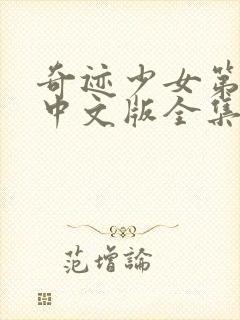 奇迹少女第
中文版全集
范增論